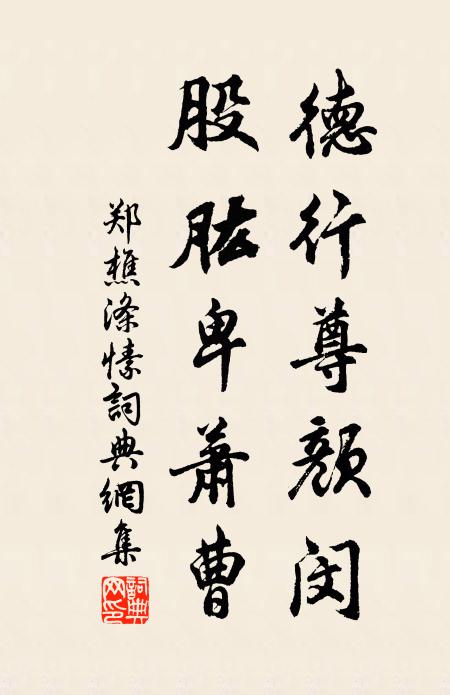 德行尊颜闵
股肱卑萧曹
郑樵涤愫詞典網集